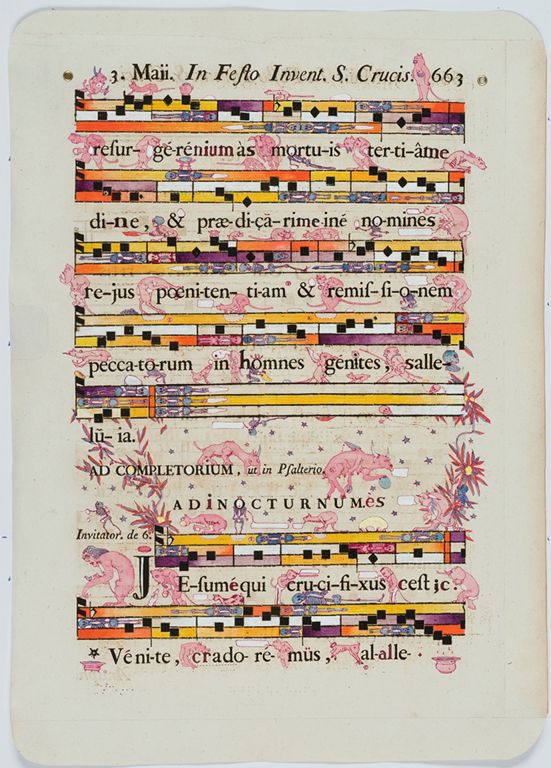 3. Maii. In Feſto Invent. S. Crucis. 663
reſur- gé-rénium às mortu-is ter-ti-âme
di-ne, & præ-di-çã-rime iné no-mines
re-jus pœni-ten- ti-am & remiſ-ſi-o-nem
pecca-to-rum in homnes génites, salle-
lũ-ia.
AD COMPLETORIUM, ut in Pſalterio,
AD INOCTURNUM.ès
Invitator. de 6.
JE-sumé qui cru-ci-fi-xus cest ;c.
Vé ni-te, crado- ré- müs, al-alle-